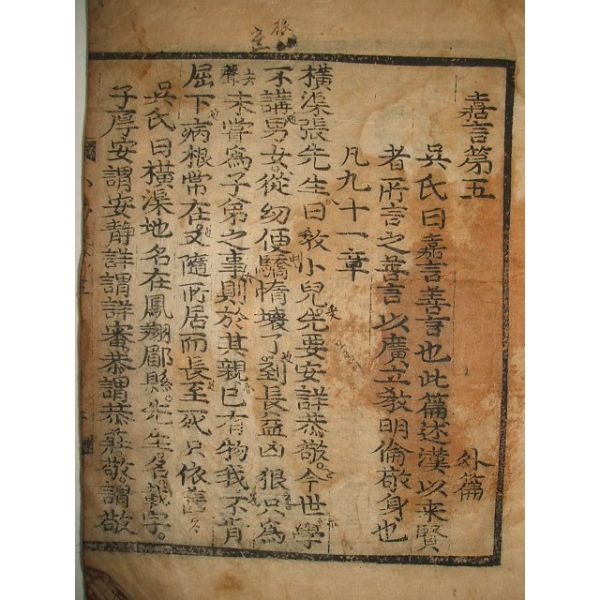 嘉言第五
外篇
吳氏曰嘉言善言也此篇述漢以来賢
者所言之善言以廣立敎明倫敬身也
凡九十一章
橫渠張先生曰敎小兒先要安詳恭敬。今世學
不講男女。從幼便驕惰壞了。到長益凶狠只爲
未嘗爲子弟之事則於其親已有物我不肯
屈下病根常在又隨所居而長至死只依舊
吳氏曰橫渠地名在鳳翔郿縣。先生名載字。
子厚安謂安靜詳謂詳審恭謂恭莊。敬謂敬